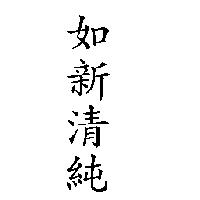 如新清純